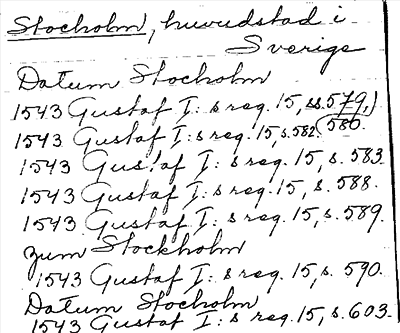 Stocholm, huvudstad i
Sverige
Datum Stocholm
1543 Gustaf I:s reg. 15, ss. 579,)
1543 Gustaf I:s reg. 15, s. 582. (580.
1543 Gustaf I:s reg. 15, s. 583.
1543 Gustaf I:s reg. 15, s. 588.
1543 Gustaf I:s reg. 15, s. 589.
zum Stockholm
1543 Gustaf I:s reg. 15, s. 590.
Datum Stocholm
1543 Gustaf I:s reg. 15, s. 603.